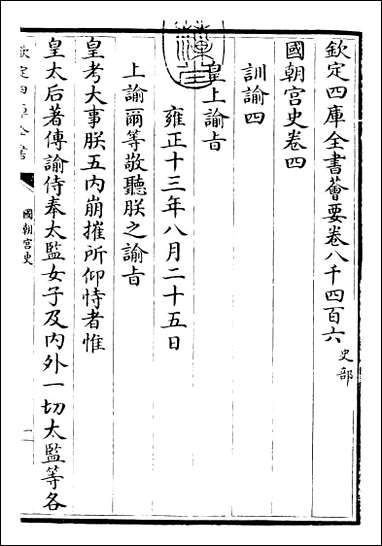 欽定四庫全書薈要卷八千四百六 史部
國朝宮史卷四
訓諭四
皇上諭旨
雍正十三年八月二十五日
上諭爾等敬聽朕之諭旨
皇考大事朕五内崩摧所仰恃者惟
皇太后著傳諭侍奉太監女子及内外一切太監等各
欽定四庫全書
國朝宮史
一